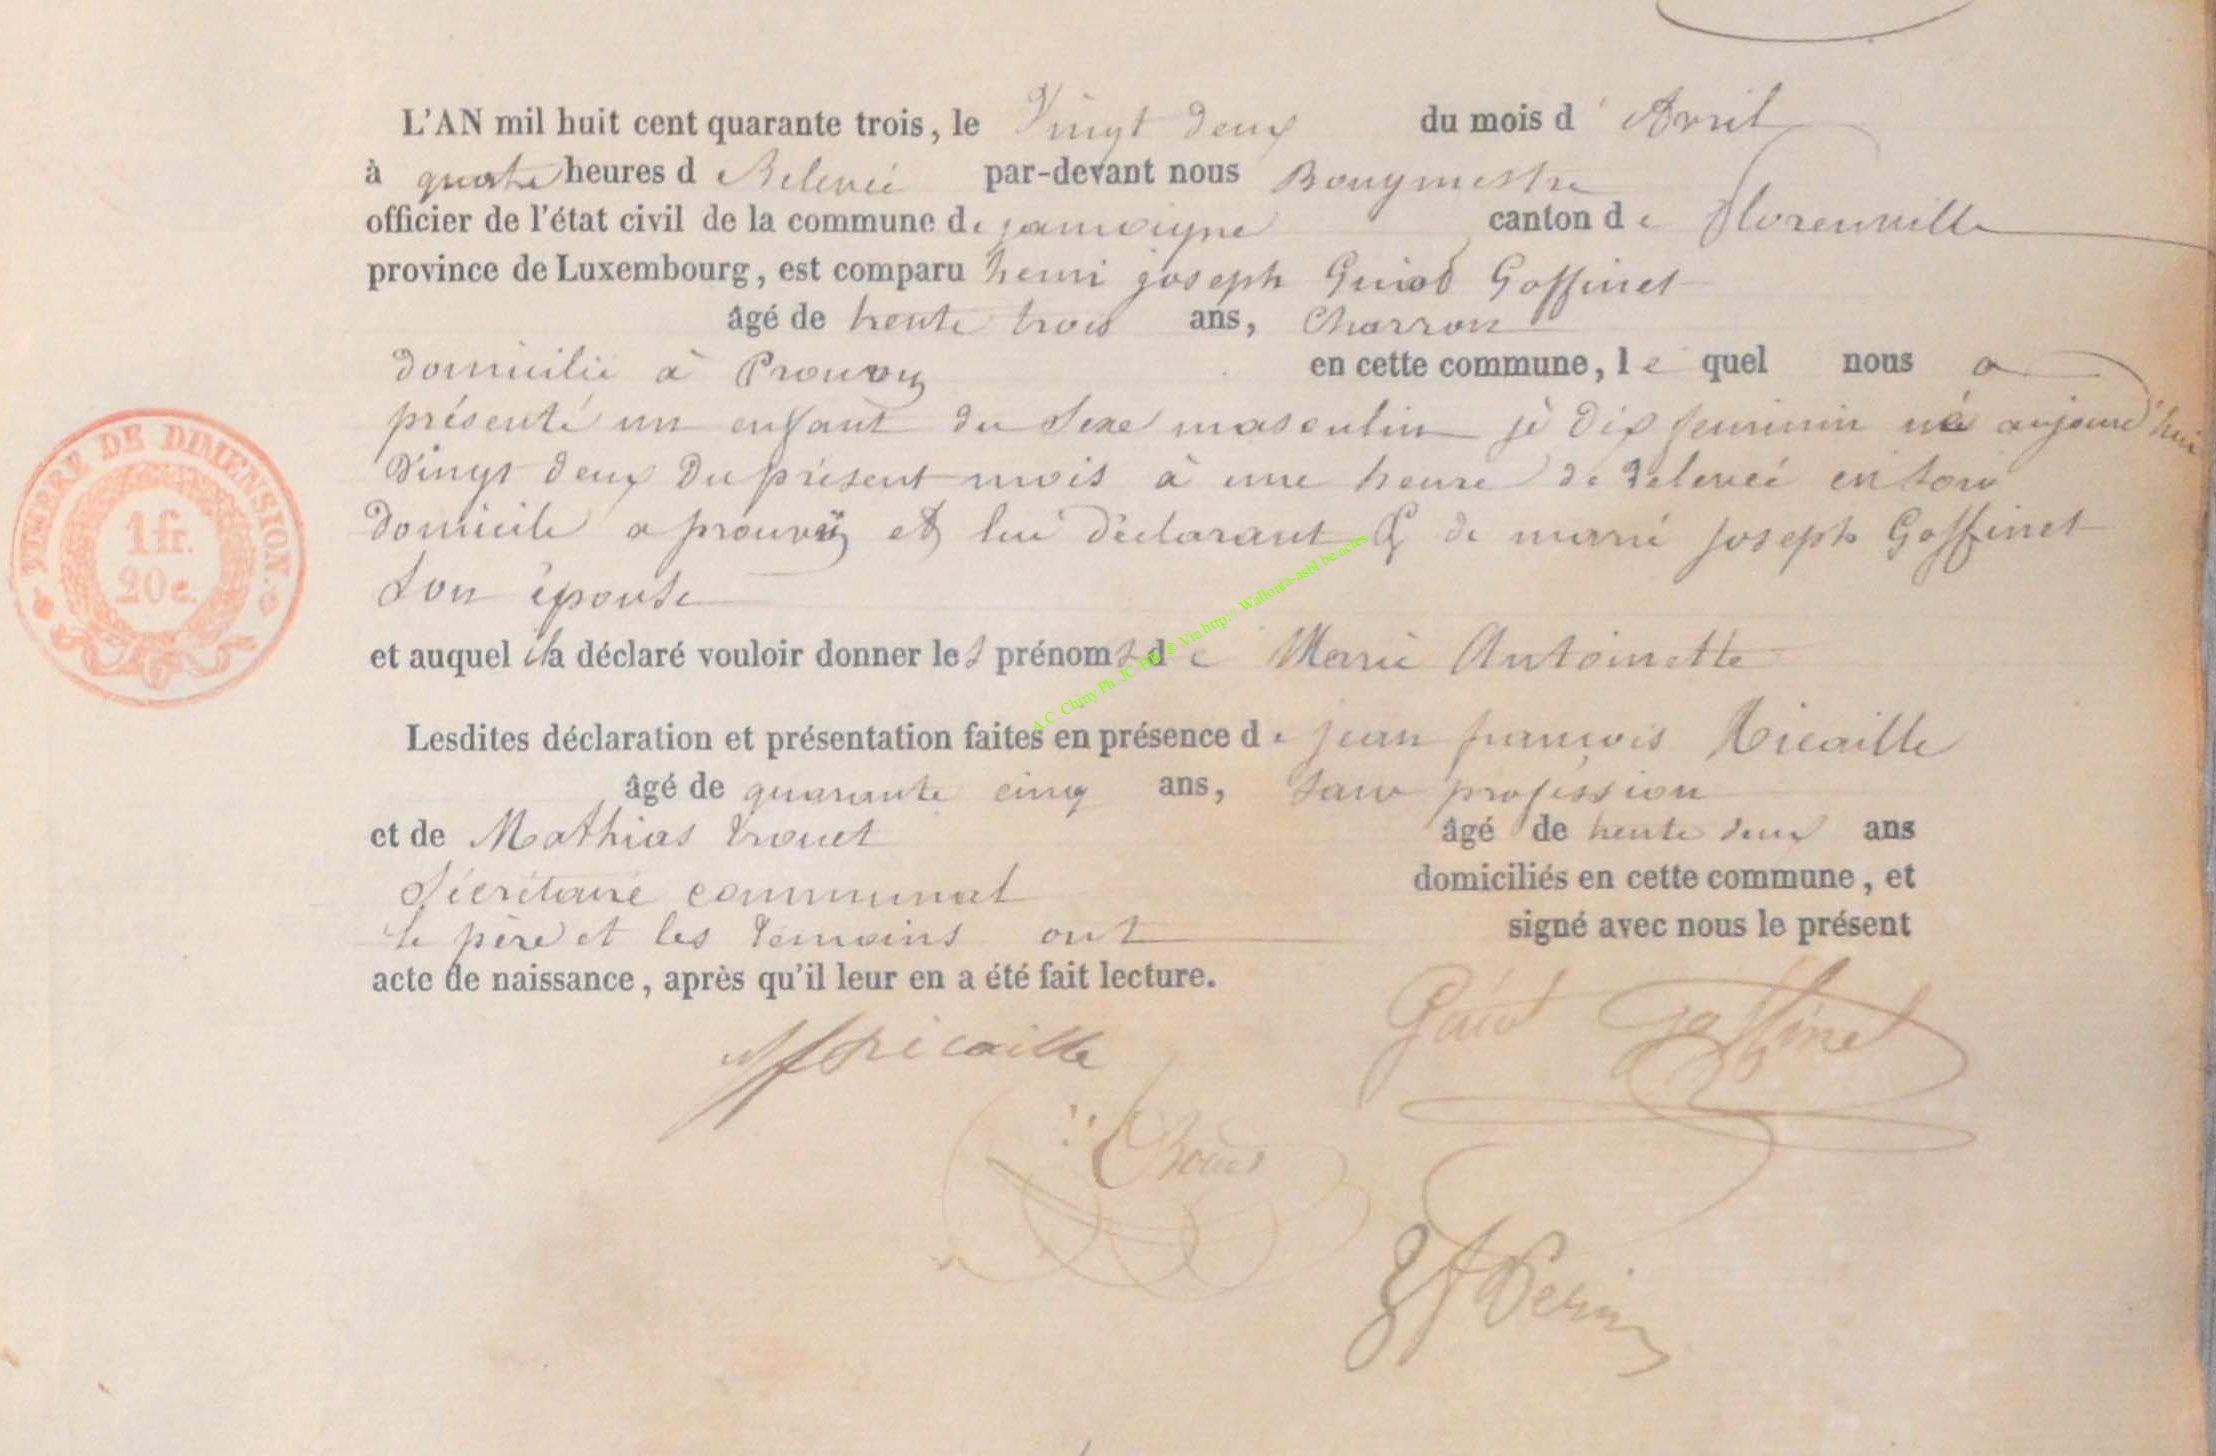 L'AN mil huit cent quarante trois, le Vingt deux du mois d'Avril
à quatre heures d Relevée par-devant nous Bourgmestre
officier de l'état civil de la commune de jamoigne canton de florenville
province de Luxembourg, est comparu henri joseph Goffinet
âgé de trente trois ans, Charron
domicilié à Prouvy en cette commune, le quel nous a
présenté un enfant du Sexe masculin jè dis feminin né aujourd'hui
Vingt deux du présent mois à une heure de relevée en son
domicile a prouvÿ et lui déclarant & de marie joseph Goffinet
son épouse
et auquel il a déclaré vouloir donner les prénoms de Marie Antoinette
Lesdites déclaration et présentation faites en présence de jean françois Ricaille
âgé de quarante cinq ans, sans profession
et de Mathias trouet âgé de trente deux ans
Sécrétaire communal domiciliés en cette commune, et
le père et les témoins ont signé avec nous le présent
acte de naissance, après qu'il leur en a été fait lecture.
ricaille Goffinet
TIMBRE DE DIMENSION.
1 fr.
20 c.
A.C. Chiny Ph. JC via http:// Wallonia-asbl.be.actes